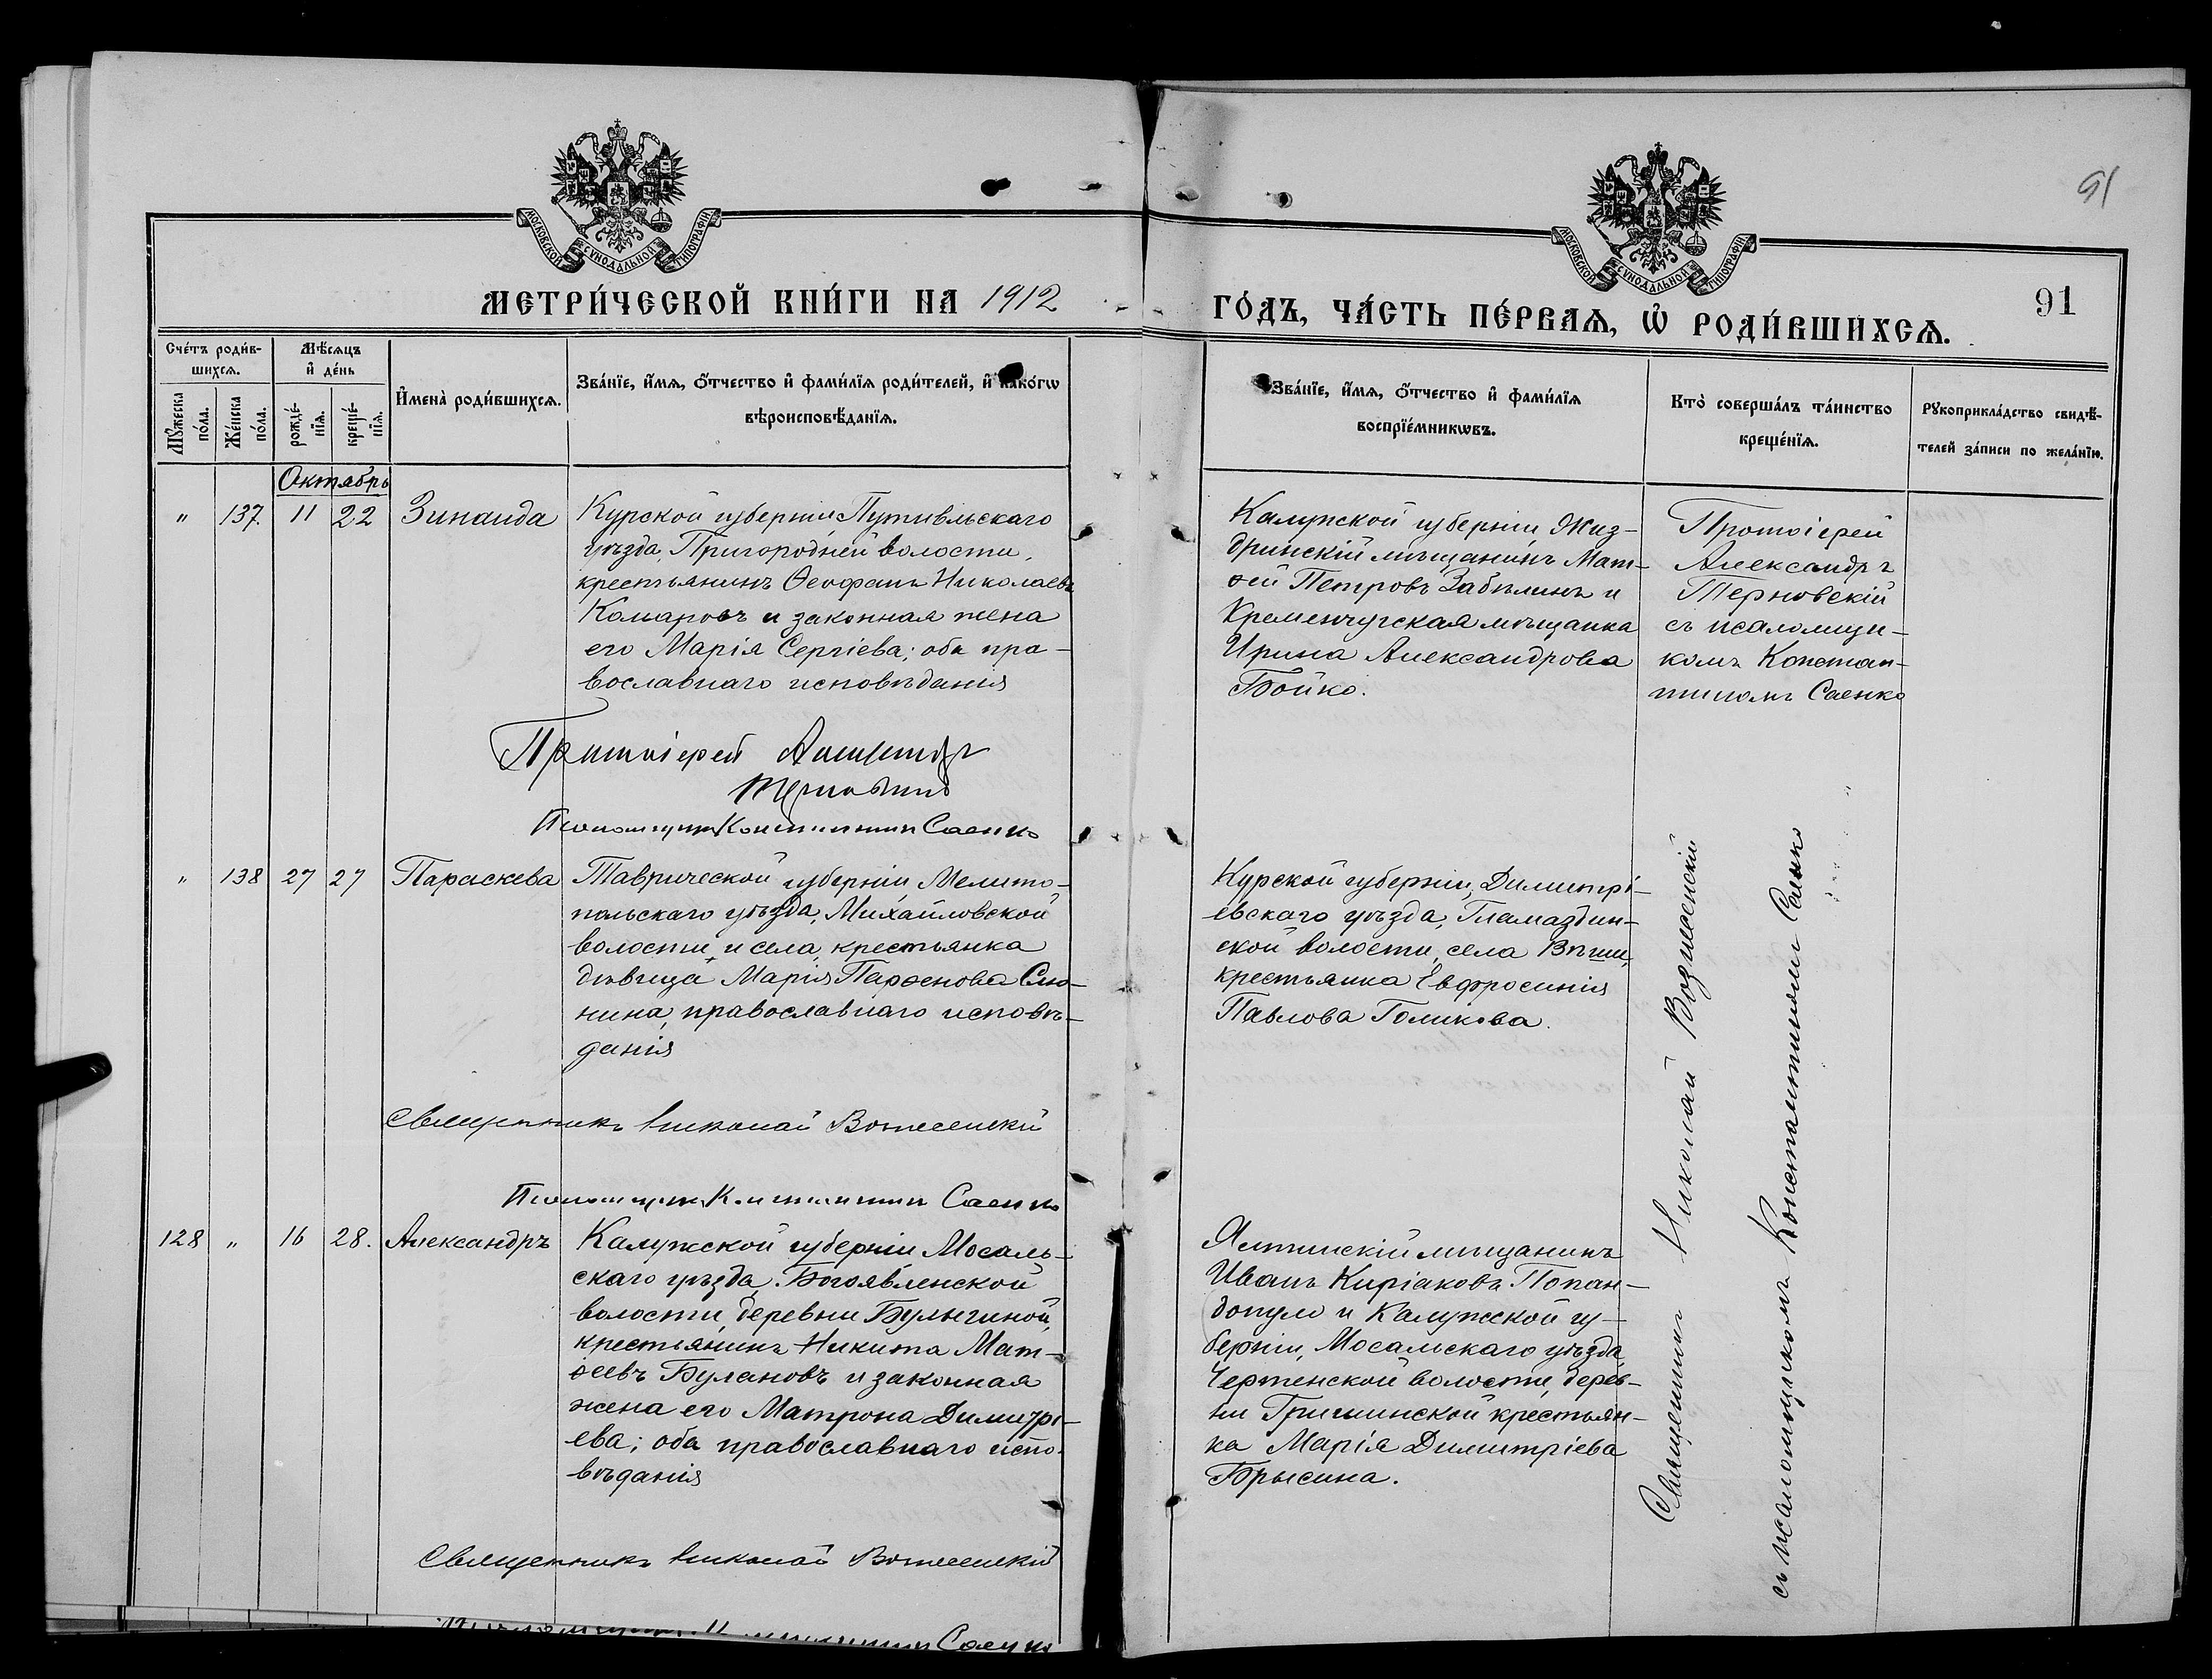 91
МОСКОВСКОЙ СѴНОДАЛЬНОЙ ТИПОГРАФІИ
МОСКОВСКОЙ СѴНОДАЛЬНОЙ ТИПОГРАФІИ
МЕТРИ́ЧЕСКОЙ КНИ́ГИ НА 1912
ГО́ДЪ, ЧА́СТЬ ПЕ́РВАѦ, Ѡ҆ РОДИ́ВШИХСѦ.
91
Сче́тъ роди́в-
шихсѧ.
Мꙋ́жеска
по́ла.
Же́нска
по́ла.
Мѣ́сѧцъ
и҆ де́нь
рожде́-
нїѧ.
креще́-
нїѧ.
И҆мена̀ роди́вшихсѧ.
Зва́нїе, и҆́мѧ, ѻ҆́тчество и҆ фами́лїѧ роди́телей, и҆ како́гѡ
вѣроисповѣ́данїѧ.
Зва́нїе, и҆́мѧ, ѻ҆́тчество и҆ фами́лїѧ
воспрїе́мникѡвъ.
Кто̀ соверша́лъ та́инство
креще́нїѧ.
Рꙋкоприкла́дство свидѣ́-
телей за́писи по жела́нїю.
Октябрь
" 137. 11 22 Зинаида
Курской губерніи Путивльскаго
уѣзда, Пригородней волости,
крестьянинъ Ѳеофанъ Николаевъ
Комаровъ и законная жена
его Марія Сергіева; оба пра-
вославнаго исповѣданія
Калужской губерніи Жиз-
дринскій мѣщанинъ Мат-
ѳей Петровъ Забѣлинъ и
Кременчугская мѣщанка
Ирина Александрова
Бойко.
Протоіерей
Александръ
Терновскій
съ псаломщи-
комъ Констан-
тиномъ Саенко
Протоіерей Александръ
Терновскій
Псаломщикъ Константинъ Саенко
" 138 27 27 Параскева
Таврической губерніи Мелито-
польскаго уѣзда, Михайловской
волости и села, крестьянка
дѣвица Марія Парѳенова Сто-
нина, православнаго исповѣ-
данія
Курской губерніи, Димитрі-
евскаго уѣзда, Гламаздин-
ской волости, села
крестьянка Евфросинія
Павлова Голикова.
Священникъ Николай Вознесенскій
съ псаломщикомъ Константиномъ Саенко
Священникъ Николай Вознесенскій
Псаломщикъ Константинъ Саенко
128 " 16 28. Александръ
Калужской губерніи Мосаль-
скаго уѣзда, Богоявленской
волости, деревни Булычиной,
крестьянинъ Никита Мат-
ѳеевъ Булановъ и законная
жена его Матрона Димитрі-
ева; оба православнаго испо-
вѣданія
Ялтинскій мѣщанинъ
Иванъ Киріаковъ Попан-
допуло и Калужской гу-
берніи, Мосальскаго уѣзда,
Чертенской волости, дерев-
ни Гришинской крестьян-
ка Марія Димитріева
Брысина.
Священникъ Николай Вознесенскій
Псаломщикъ Константинъ Саенко